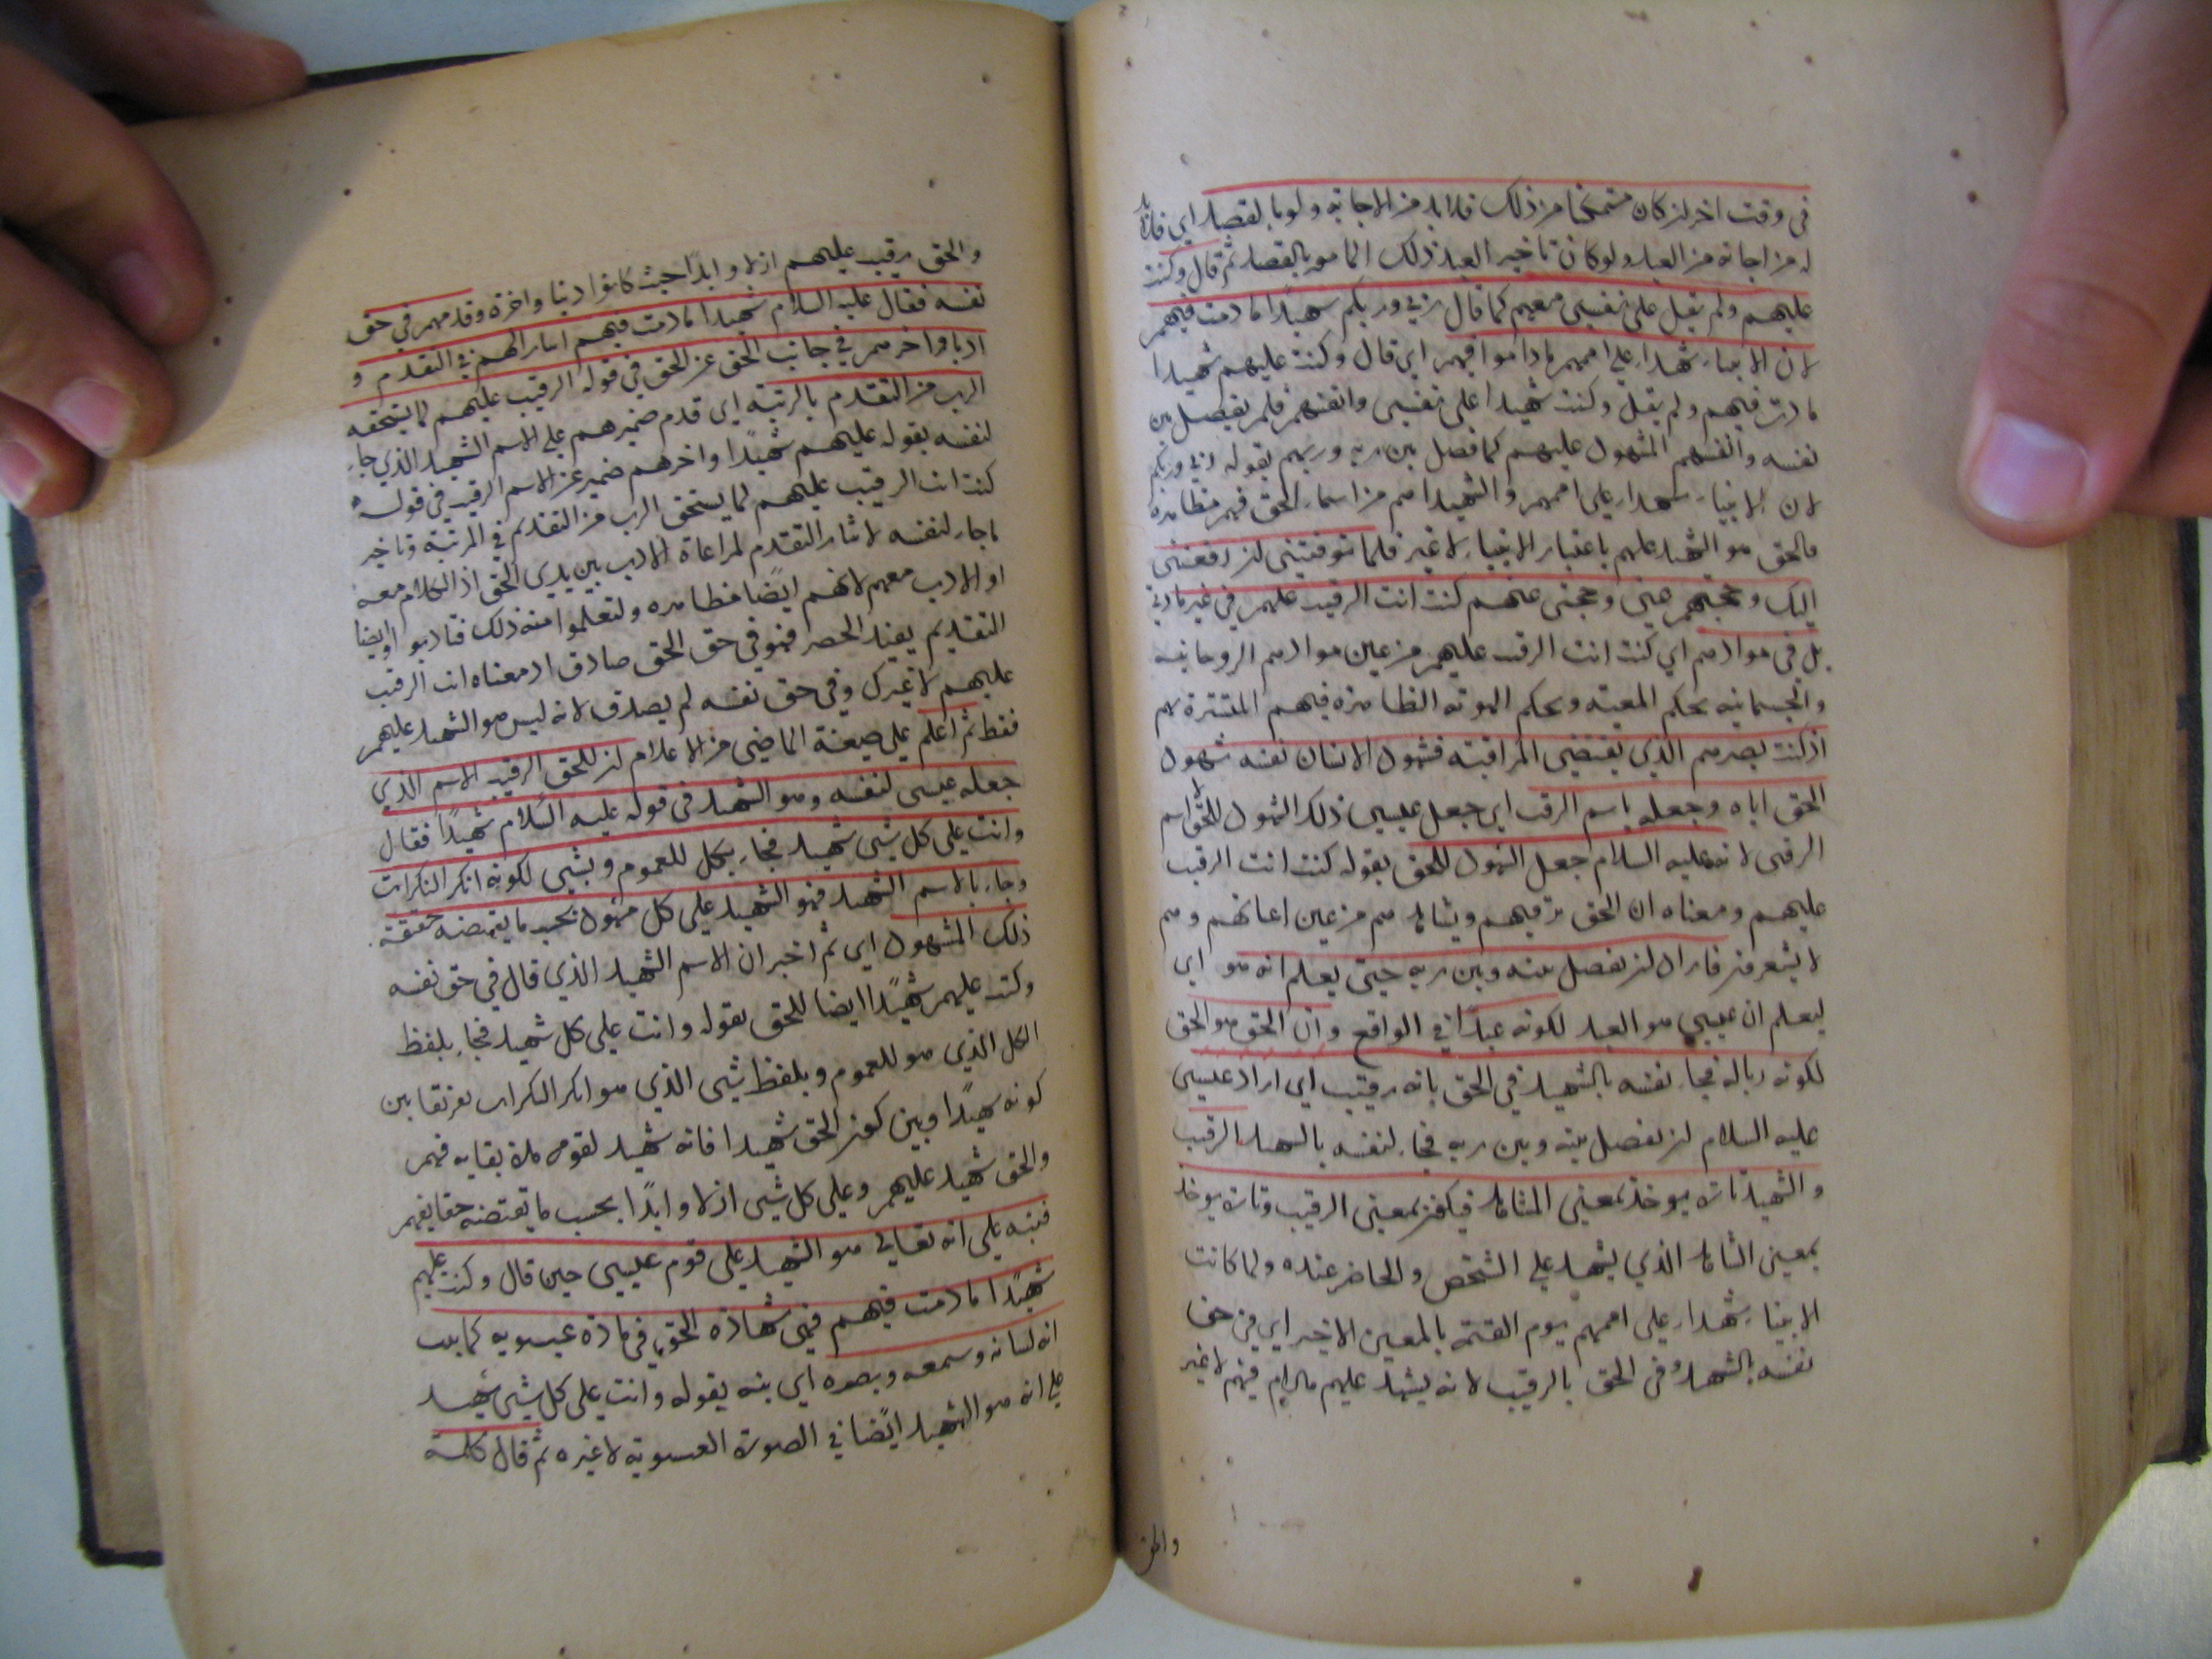 في وقت اخر لزكان متمكنا من ذلك فلابد من الاجابة ولو بالقصد اي فلابد
له من اجابة من العبد ولو كان تاخير العبد ذلك المامور بالقصد ثم قال وكنت
عليهم ولم يقل على نفسي معهم كما قال ربي وربكم شهيدا مادمت فيهم
لان الانبياء شهداء على اممهم ماداموا فيهم اي قال وكنت عليهم شهيدا
مادمت فيهم ولم يقل وكنت شهيدا على نفسي وانفسهم فلم يفصل بين
نفسه وانفسهم المشهود عليهم كما فصل بين ربه وربهم بقوله ربي وربكم
لان الانبياء شهداء على اممهم والشهيد اسم من اسماء الحق فهم مظاهره
فالحق هو الشهيد عليهم باعتبار الانبياء لا غير فلما توفيتني لز رفعتني
اليك وحجبتهم عني وحجبتني عنهم كنت انت الرقيب عليهم في غير مادتي
بل في موادهم اي كنت انت الرقيب عليهم من عين موادهم الروحانية
والجسمانية بحكم المعية وبحكم الهوية الظاهرة فيهم المستترة بهم
اذ كنت بصرهم الذي يقتضي المراقبة فشهود الانسان نفسه شهود
الحق اياه وجعله باسم الرقيب اي جعل عيسى ذلك الشهود للحق اسم
الرقيب لانه عليه السلام جعل الشهود للحق بقوله كنت انت الرقيب
عليهم ومعناه ان الحق يرقبهم ويشاهدهم من عين اعيانهم وهم
لا يشعرون فاراد لز يفصل بينه وبين ربه حتى يعلم انه هو اي
ليعلم ان عيسى هو العبد لكونه عبدا في الواقع وان الحق هو الحق
لكونه ربا له فجاء لنفسه بالشهيد في الحق بانه رقيب اي اراد عيسى
عليه السلام لز يفصل بينه وبين ربه فجاء لنفسه بالشهيد الرقيب
والشهيد تارة يوخذ بمعنى المشاهد فيكون بمعنى الرقيب وتارة يوخذ
بمعنى الشاهد الذي يشهد على الشخص والحاضر عنده ولما كانت
الانبياء شهداء على اممهم يوم القيمة بالمعنى الاخير اي في حق
نفسه بالشهيد وفي الحق بالرقيب لانه يشهد عليهم مادام فيهم لا غير
والحق
والحق رقيب عليهم ازلا وابدا حيث كانوا دنيا واخرة وقدمهم في حق
نفسه فقال عليه السلام شهيدا مادمت فيهم ايثارا لهم في التقدم و
ادبا واخرهم في جانب الحق عن الحق في قوله الرقيب عليهم لما يستحقه
الرب من التقدم بالرتبة اي قدم ضميرهم على الاسم الشهيد الذي جاء
لنفسه بقوله عليهم شهيدا واخرهم ضمير عن الاسم الرقيب في قوله
كنت انت الرقيب عليهم لما يستحق الرب من التقدم في المرتبة وتاخير
ماجاء لنفسه لايثار التقدم لمراعاة الادب بين يدي الحق اذ الكلام معه
او الادب معهم لانهم ايضا مظاهره ولتعلموا منه ذلك فتادبوا وايضا
التقديم يفيد الحصر فهو في حق الحق صادق اذ معناه انت الرقيب
عليهم لا غيرك وفي حق نفسه لم يصدق لانه ليس هو الشهيد عليهم
فقط ثم اعلم على صيغة الماضي من الاعلام لز للحق الرقيب الاسم الذي
جعله عيسى لنفسه وهو الشهيد في قوله عليه السلام شهيدا فقال
وانت على كل شيء شهيد فجاء بكل للعموم وبشيء لكونه انكر النكرات
وجاء بالاسم الشهيد فهو الشهيد على كل مشهود بحسب ما يقتضيه حقيقة
ذلك المشهود اي ثم اخبر ان الاسم الشهيد الذي قال في حق نفسه
وكنت عليهم شهيدا ايضا للحق بقوله وانت على كل شهيد فجاء بلفظ
الكل الذي هو للعموم وبلفظ شيء الذي هو انكر النكرات تفريقا بين
كونه شهيدا وبين كون الحق شهيدا فانه شهيد لقومه مدة بقايه فيهم
والحق شهيد عليهم وعلى كل شيء ازلا وابدا بحسب ما يقتضيه حقايقهم
فنبه على انه تعالى هو الشهيد على قوم عيسى حين قال وكنت عليهم
شهيدا مادمت فيهم فهي شهادة الحق في مادة عيسوية كما ثبت
انه لسانه وسمعه وبصره اي نبه بقوله وانت على كل شيء شهيد
على انه هو الشهيد ايضا في الصورة العيسوية لا غيره ثم قال كلمة